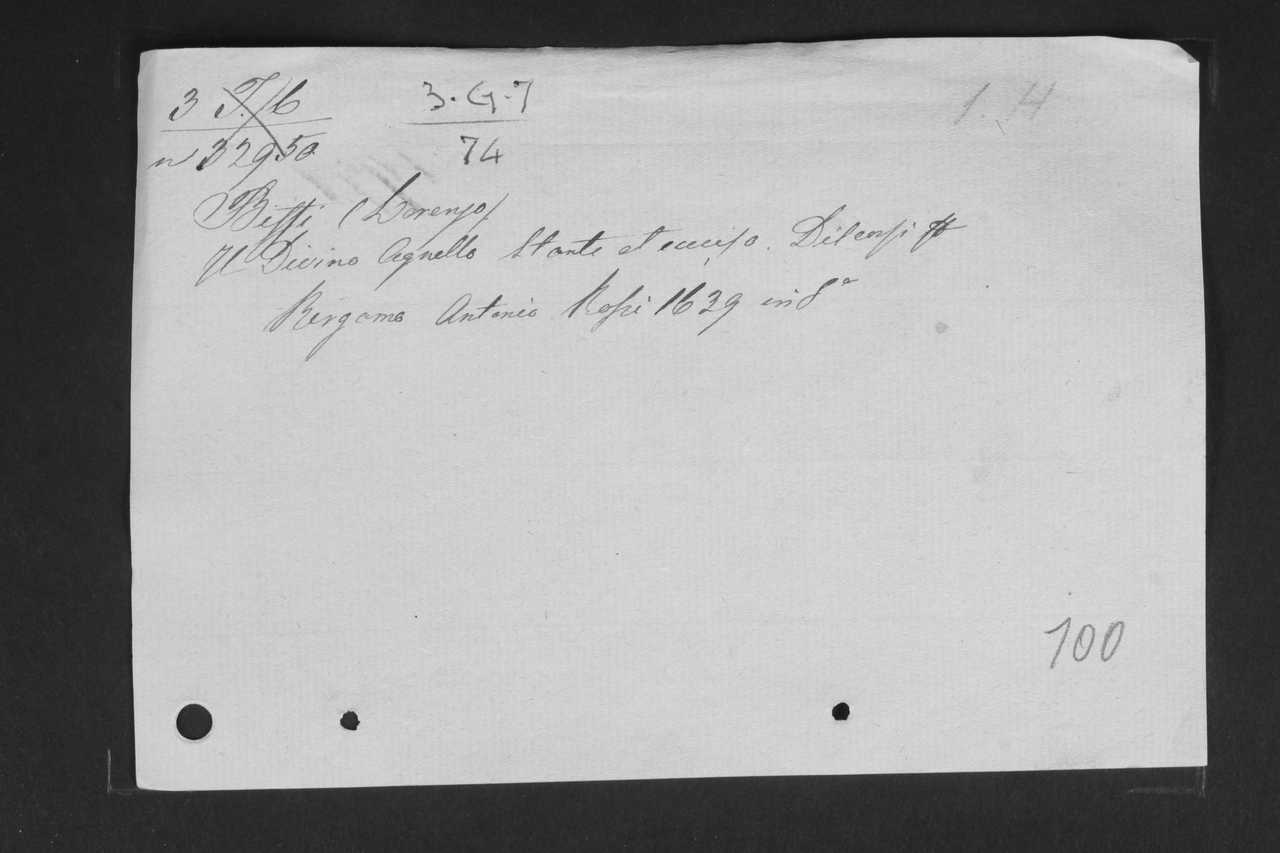 3 T. 6 3. G. 7 1. H
n 32950 74
Biffi (Lorenzo)
Il Divino Agnello Stante et occiso. Discorsi
Bergamo Antonio Rossi 1639 in 8°
100